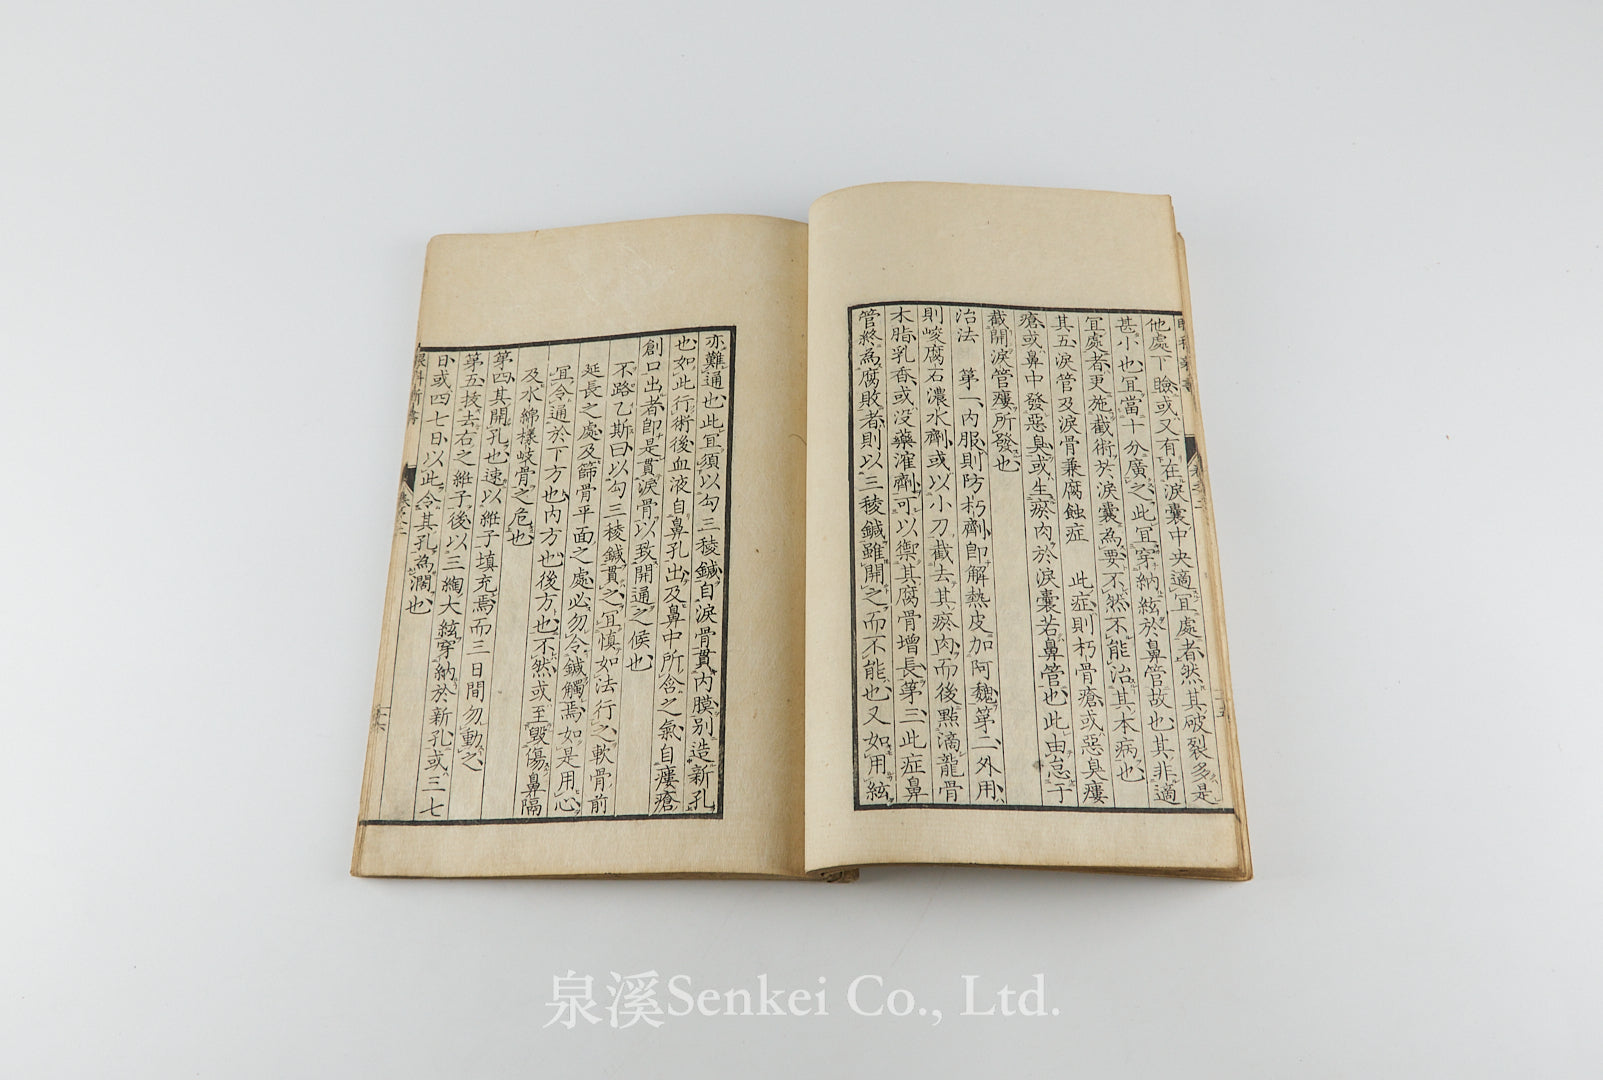 他處下瞼或又有在淚囊中央適宜處者然其破裂多是
甚小也宜當十分廣之此宜穿納絃於鼻管故也其非適
宜處者更施截術於淚囊為要不然不能治其本病也
其五淚管及淚骨兼腐蝕症 此症則朽骨瘡或惡臭瘻
瘡或鼻中發惡臭或生瘀肉於淚囊若鼻管也此由怠于
截開淚管瘻所發也
治法 第一内服則防朽劑即解熱皮加阿魏第二外用
則峻腐石濃水劑或以小刀截去其瘀肉而後點滴龍骨
木脂乳香或没藥漼劑可以禦其腐骨增長第三此症鼻
管終為腐敗者則以三稜鍼雖開之而不能也又如用絃
亦難通也此宜須以勾三稜鍼自淚骨貫内膜别造新孔
也如此行術後血液自鼻孔出及鼻中所含之氣自瘻瘡
創口出者即是貫淚骨以致開通之候也
不路乙斯曰以勾三稜鍼貫之宜慎如法行之軟骨前
延長之處及篩骨平面之處必勿令鍼觸焉如是用心
宜令通於下方也内方也後方也不然或至毀傷鼻隔
及水綿樣岐骨之危也
第四其開孔也速以維子填充焉而三日間勿動之
第五拔去右之維子後以三綯大絃穿納於新孔或三七
日或四七日以此令其孔為濶也
眼科新書
泉溪Senkei Co., Ltd.